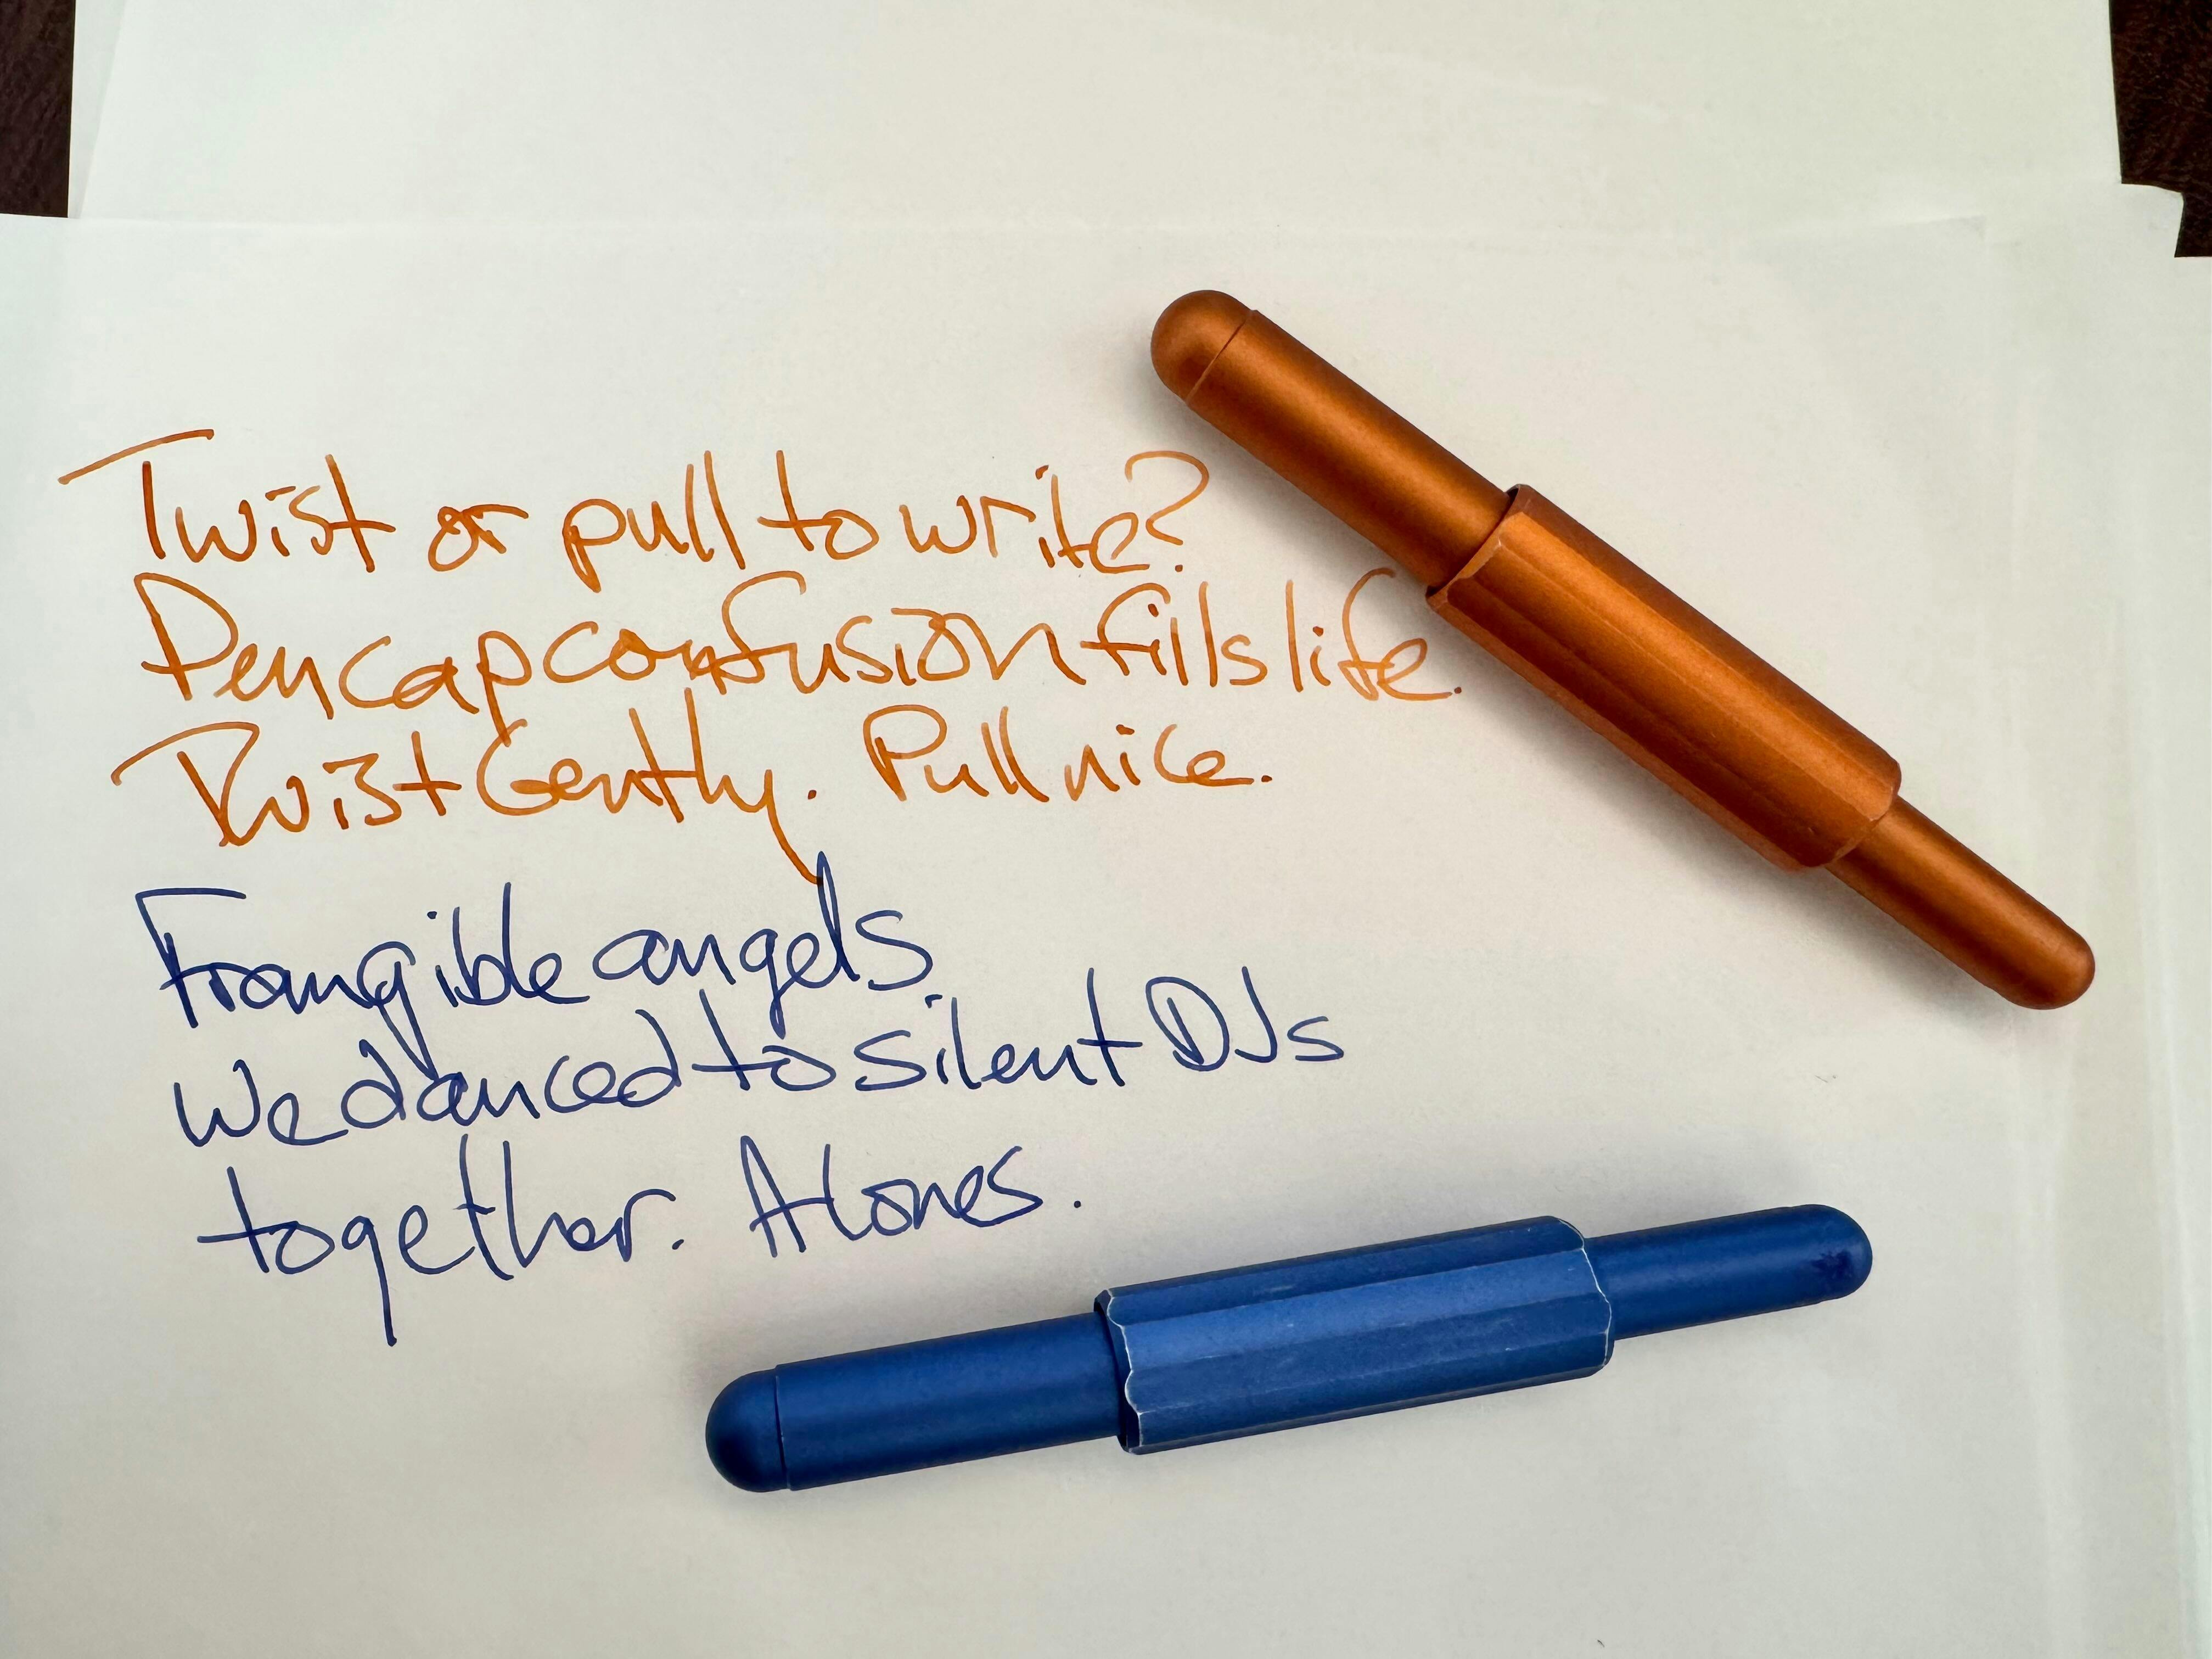 Twist or pull to write?
Pen cap confusion fills life.
Twist Gently. Pull nice.
Frangible angels
We danced to silent DJs
together. Alones.